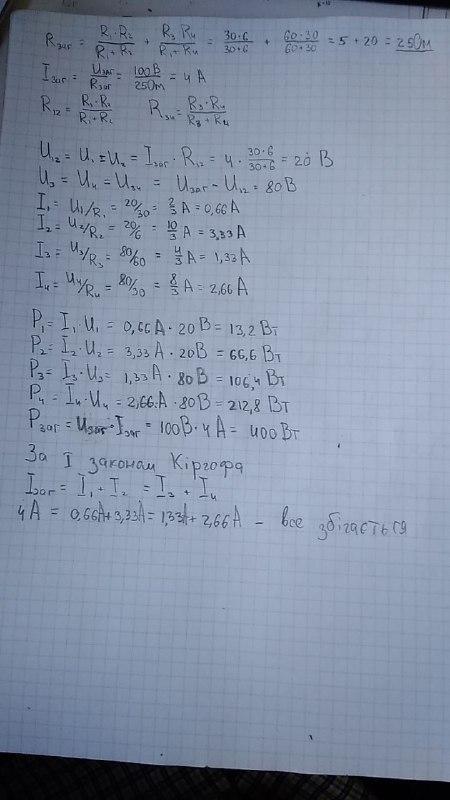 Rзаг = R₁·R₂/R₁+R₂ + R₃·R₄/R₁+R₄ = 30·6/30+6 + 60·30/60+30 = 5 + 20 = 25Ом
Iзаг = Uзаг/Rзаг = 100В/25Ом = 4 А
R₁₂ = R₁·R₂/R₁+R₂ R₃₄ = R₃·R₄/R₃+R₄
U₁₂ = U₁ = U₂ = Iзаг · R₁₂ = 4 · 30·6/30+6 = 20 В
U₃ = U₄ = U₃₄ = Uзаг - U₁₂ = 80В
I₁ = U₁/R₁ = 20/30 = 2/3 А = 0,66А
I₂ = U₂/R₂ = 20/6 = 10/3 А = 3,33А
I₃ = U₃/R₃ = 80/60 = 4/3 А = 1,33А
I₄ = U₄/R₄ = 80/30 = 8/3 А = 2,66А
P₁ = I₁·U₁ = 0,66А · 20В = 13,2 Вт
P₂ = I₂·U₂ = 3,33А · 20В = 66,6 Вт
P₃ = I₃·U₃ = 1,33А · 80В = 106,4 Вт
P₄ = I₄·U₄ = 2,66А · 80В = 212,8 Вт
Pзаг = Uзаг·Iзаг = 100В · 4А = 400Вт
За I законам Кіргофа
Iзаг = I₁ + I₂ = I₃ + I₄
4А = 0,66А+3,33А = 1,33А+2,66А – все збігається